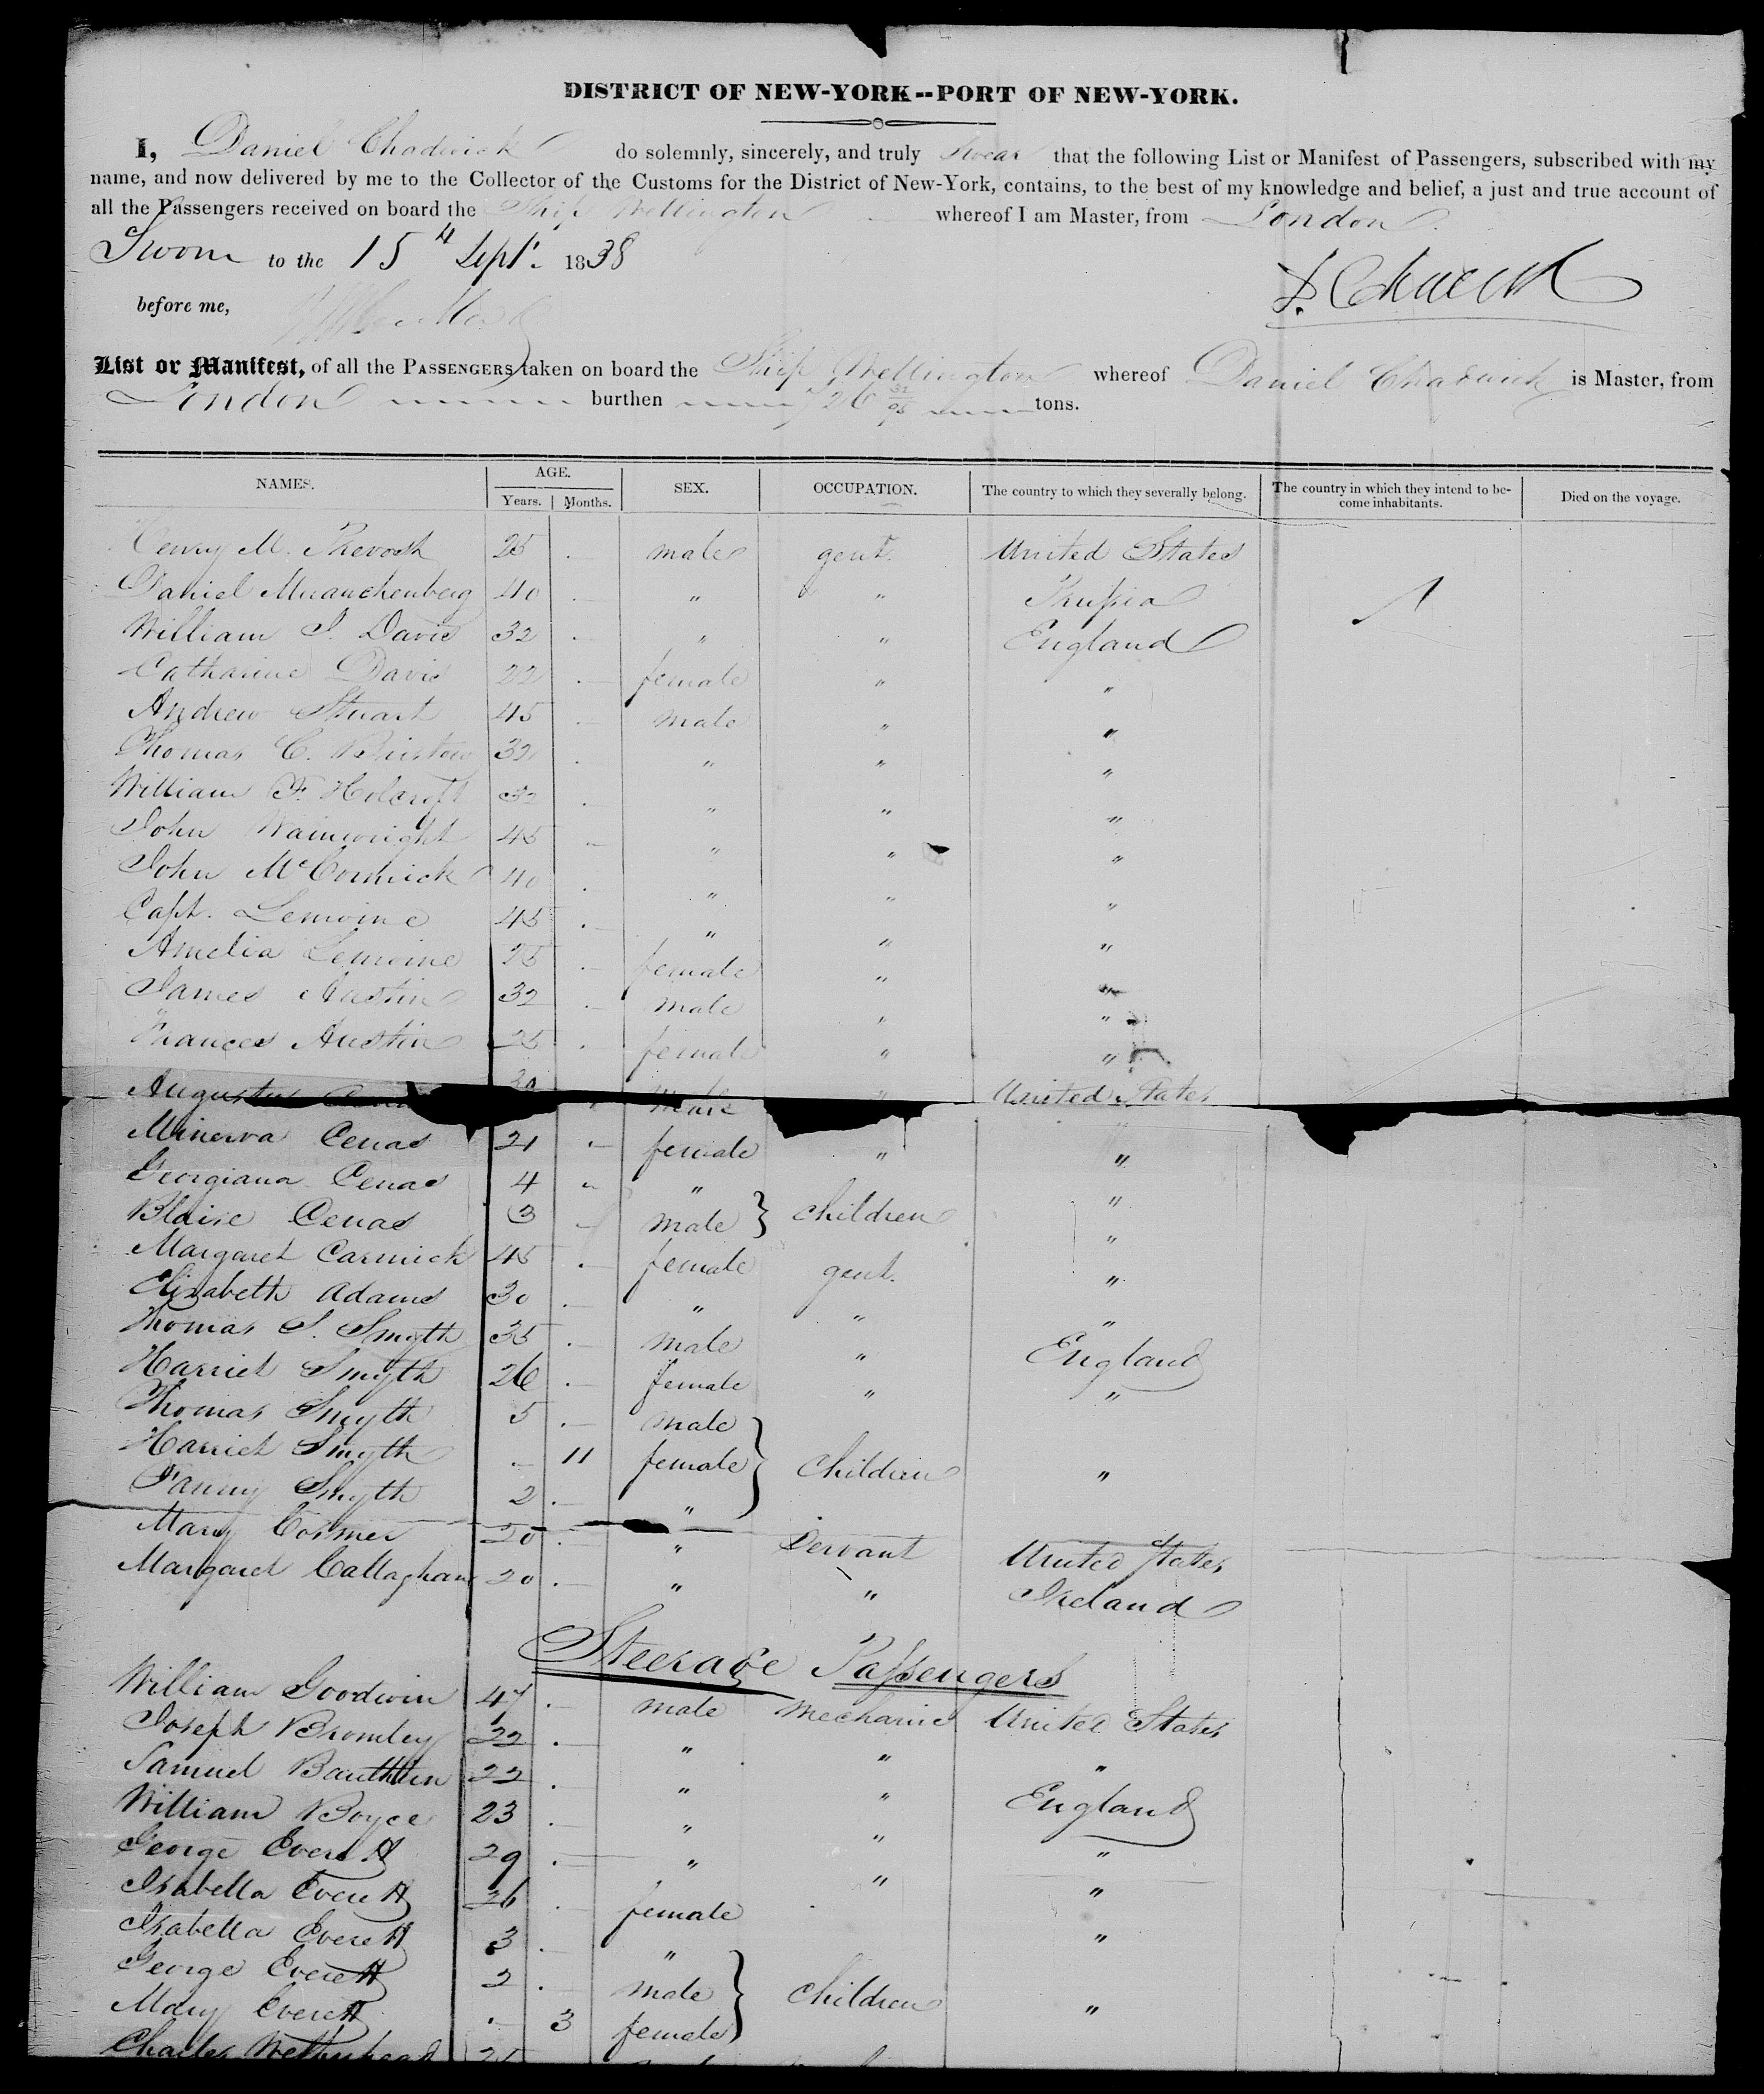 DISTRICT OF NEW-YORK--PORT OF NEW-YORK.
I, Daniel Chadwick do solemnly, sincerely, and truly Swear that the following List or Manifest of Passengers, subscribed with my
name, and now delivered by me to the Collector of the Customs for the District of New-York, contains, to the best of my knowledge and belief, a just and true account of
all the Passengers received on board the Ship Wellington whereof I am Master, from London.
Sworn to the 15th Sept. 1838
D. Chadwick
before me,
List or Manifest, of all the PASSENGERS taken on board the Ship Wellington whereof Daniel Chadwick is Master, from
London burthen 726 32/95 tons.
NAMES. AGE. SEX. OCCUPATION. The country to which they severally belong. The country in which they intend to be- Died on the voyage.
Years. Months. come inhabitants.
Henry M. Prevost 25 . male gent. United States
Daniel 40 . " " Prussia
William J. Davis 32 . " " England
Catharine Davis 22 . female " "
Andrew Stuart 45 . male " "
Thomas C. Bristow 32 . " " "
William F. Holcroft 32 . " " "
John Wainwright 45 . " " "
John McCormick 40 . " " "
Capt. Lemoine 45 . " " "
Amelia Lemoine 25 . female " "
James Austin 32 . male " "
Frances Austin 25 . female " "
Augustus 30 male " United States
Minerva Cenas 21 . female " "
Georgiana Cenas 4 . " "
Blaise Cenas 3 . male } children "
Margaret Carmick 45 . female gent. "
Elizabeth Adams 30 . " " "
Thomas S. Smyth 35 . male " England
Harriet Smyth 26 . female " "
Thomas Smyth 5 . male
Harriet Smyth . 11 female } Children "
Fanny Smyth 2 . "
Mary 20 . " Servant United States
Margaret Callaghan 20 . " " Ireland
Steerage Passengers
William Goodwin 47 . male Mechanic United States
Joseph Bromley 22 . " " "
Samuel 22 . " " England
William Boyce 23 . " " "
George Everett 29 . " " "
Isabella Everett 26 . female "
Isabella Everett 3 . "
George Everett 2 . male } Children "
Mary Everett . 3 female
Charles 25